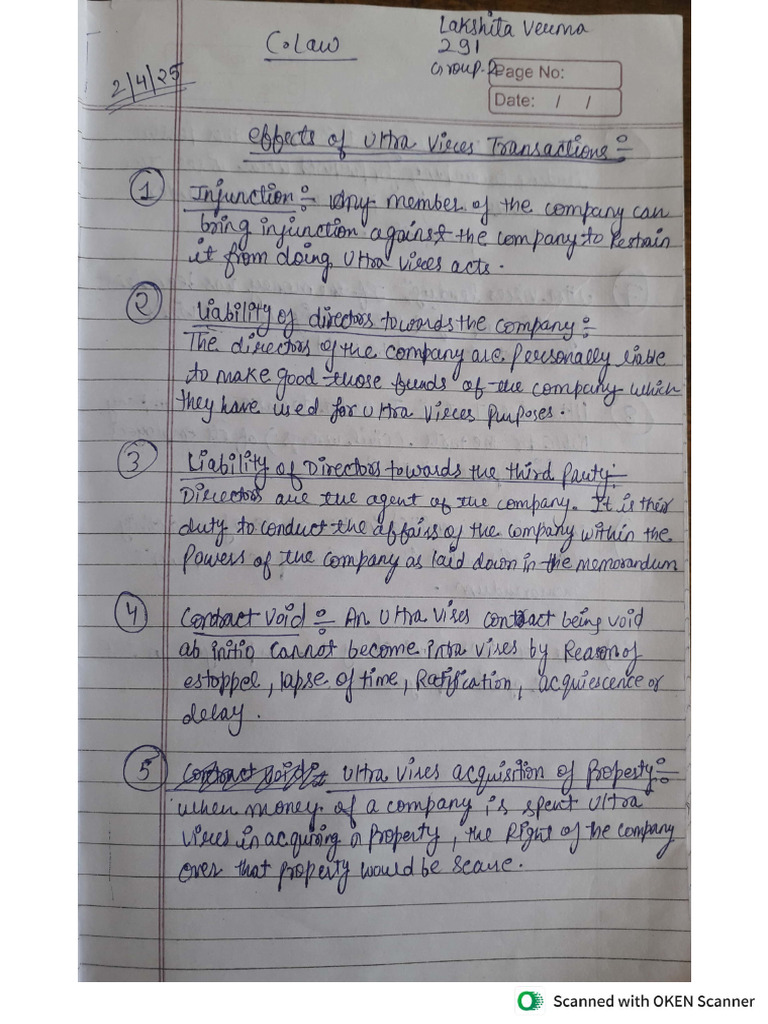 Lakshita Verma
C.Law
291
Group-2
Page No:
2/4/25
Date: / /
Effects of Ultra Vires Transactions :-
① Injunction :- Any member of the company can
bring injunction against the company to Restrain
it from doing Ultra Vires acts.
② Liability of directors towards the company :-
The directors of the company are personally liable
to make good those funds of the company which
they have used for ultra vires purposes.
③ Liability of Directors towards the third Party :-
Directors are the agent of the company. It is their
duty to conduct the affairs of the company within the
Powers of the company as laid down in the memorandum
④ Contract Void :- An Ultra Vires contract being void
ab initio cannot become intra vires by Reason of
estoppel, lapse of time, Ratification, acquiescence or
delay.
⑤ Contract Void :- Ultra Vires acquisition of Property :-
when money of a company is spent Ultra
Vires in acquiring a Property, the Right of the company
over that property would be secure.
Scanned with OKEN Scanner